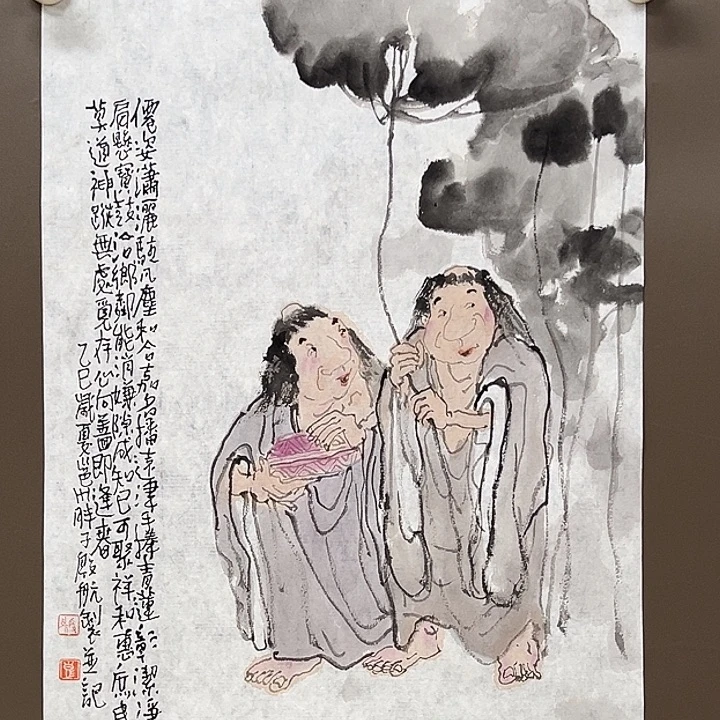 僊姿瀟灑駐凡塵和合嘉名播遠津手擎青蓮彰潔淨
肩懸寶鼓洽鄉鄰能消嫌隙成知己可聚祥和惠庶民
莫道神蹤無處覓存心向善即逢春
乙巳歲夏邕州胖子殷航製並記